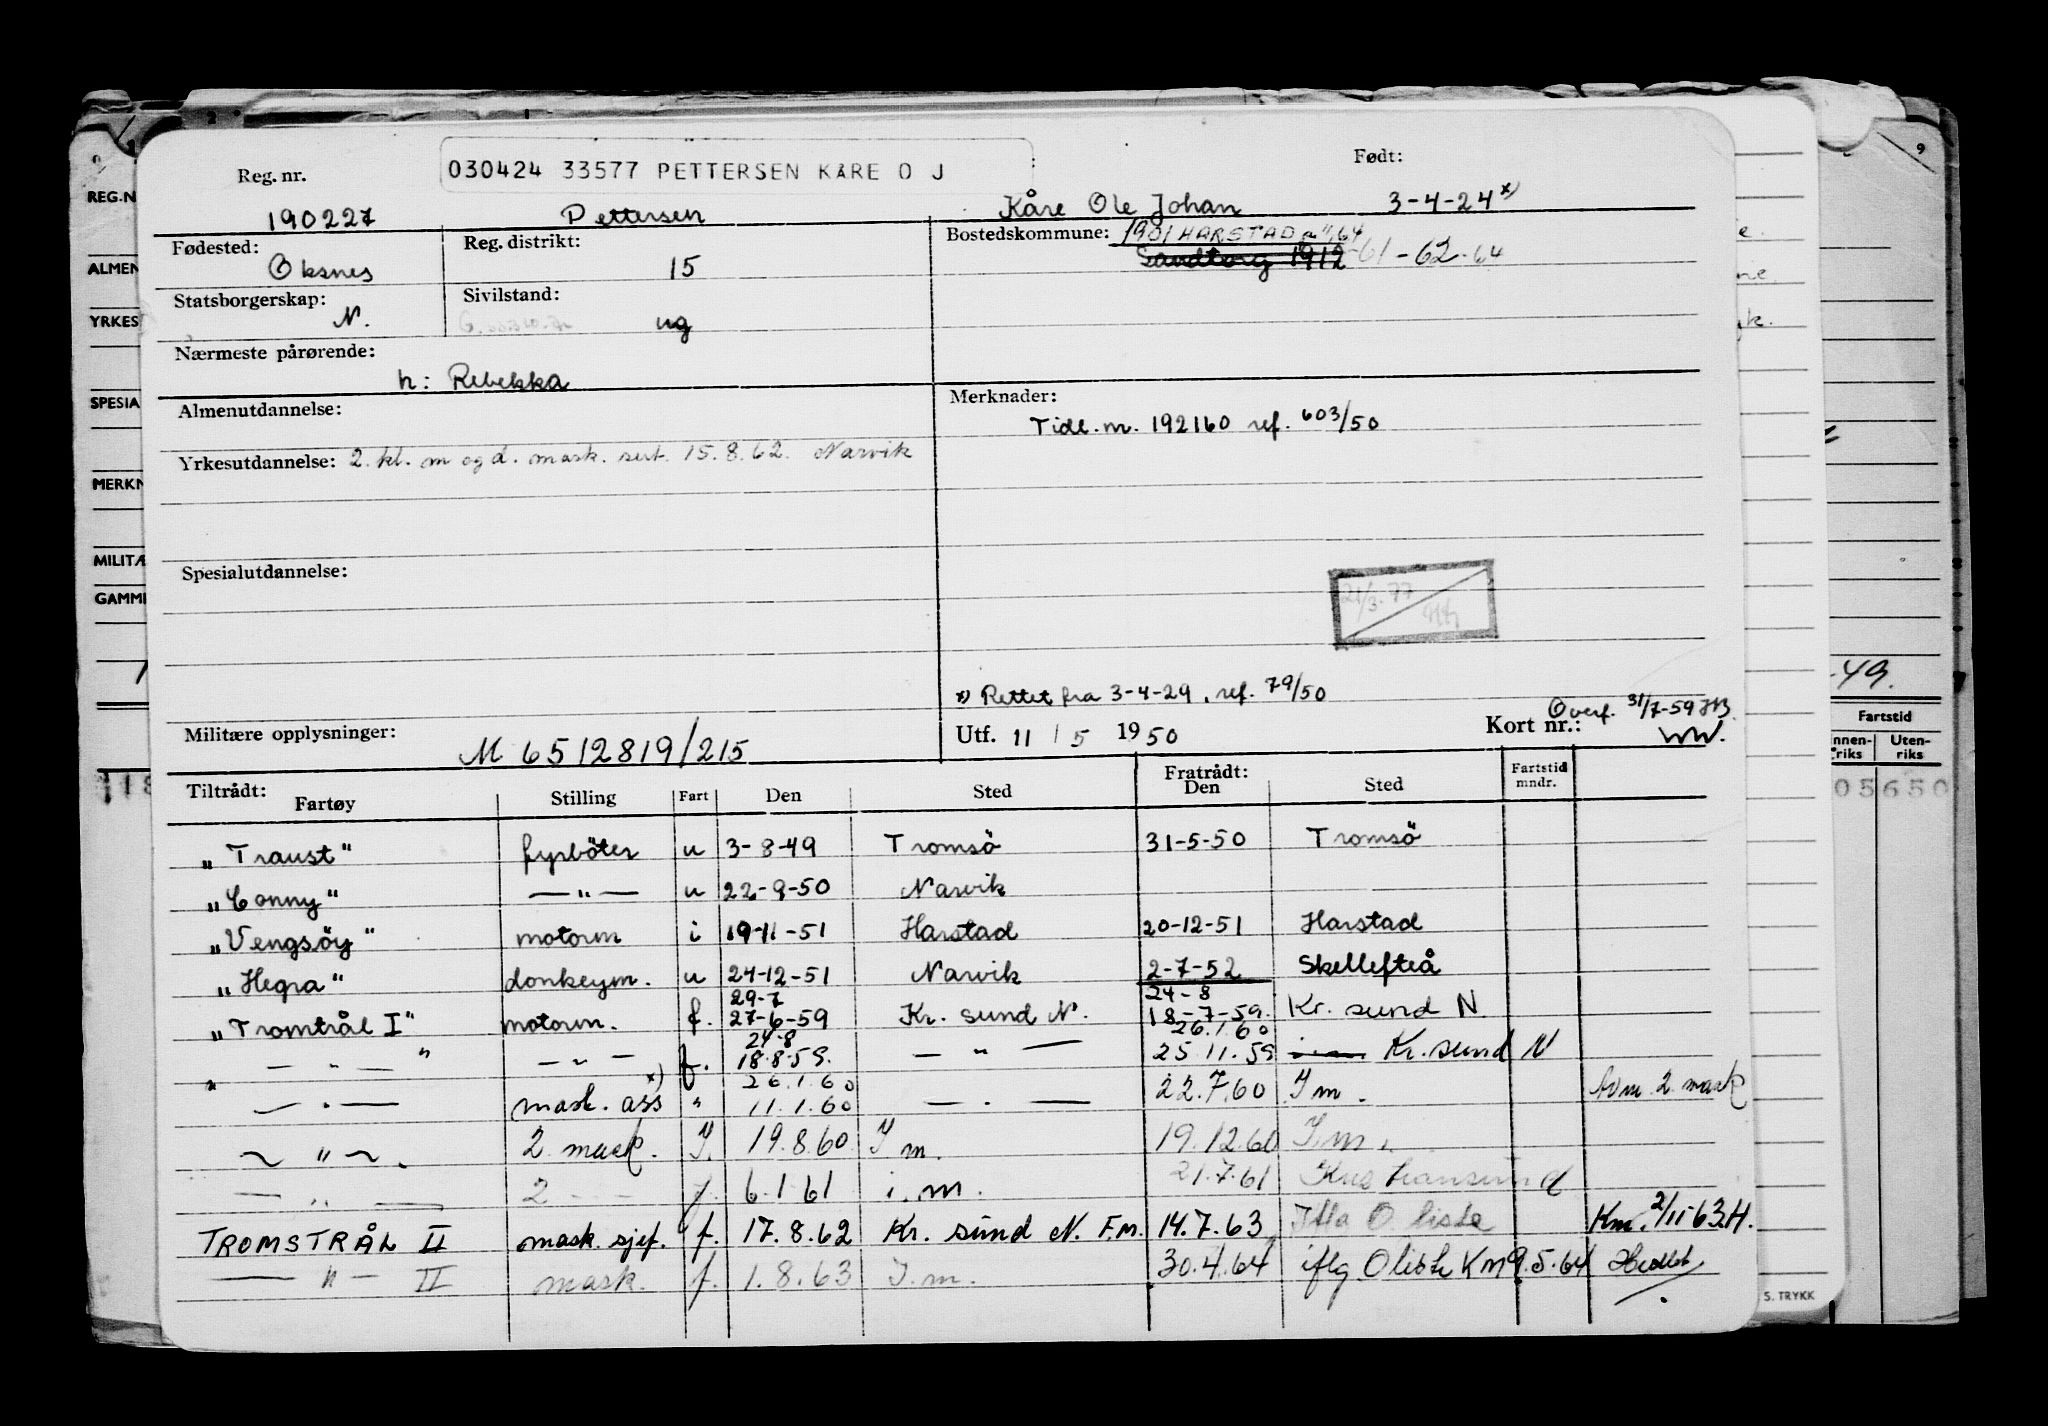 Reg. nr. 030424 33577 PETTERSEN KÅRE O J Født:
190227 Pettersen Kåre Ole Johan 3-4-24 x)
Fødested: Reg. distrikt: Bostedskommune: 1901 HARSTAD
Oksnes 15 Sandtorg 1912 -61-62-64
Statsborgerskap: Sivilstand:
N. ug
Nærmeste pårørende:
h: Rebekka
Almenutdannelse: Merknader:
Tidl. nr. 192160 ref. 603/50
Yrkesutdannelse: 2. kl. m og d. mask. sert. 15.8.62. Narvik
Spesialutdannelse:
21/3.77
x) Rettet fra 3-4-29, ref. 79/50
Overf. 31/7-59
Militære opplysninger: M 6512819/215 Utf. 11/5 1950 Kort nr.:
Tiltrådt: Fratrådt: Fartstid
Fartøy Stilling Fart Den Sted Den Sted mndr.
"Traust" fyrböter u 3-8-49 Tromsö 31-5-50 Tromsö
"Conny" — " — u 22-9-50 Narvik
"Vengsöy" motorm i 19-11-51 Harstad 20-12-51 Harstad
"Hegra" donkeym. u 24-12-51 Narvik 2-7-52 Skellefteå
29-7 24-8
"Tromtrål I" motorm. f. 27-6-59 Kr. sund N. 18-7-59. Kr. sund N.
24-8 26.1.60
" — " — — " — f. 18.8.59. — " — 25.11.59 Kr. sund N
26.1.60
— " — mask. ass x) " 11.1.60 — " — 22.7.60 I m. 2. mask
— " — . 2 mask. f. 19.8.60 I m. 19.12.60 I. m.
— " — 2 — f. 6.1.61 i. m. 21.7.61 Kristiansund
TROMSTRÅL II mask. sjef. f. 17.8.62 Kr. sund N. F.m. 14.7.63 Km. 2/11-63.H.
— " — II mask. f. 1.8.63 I. m. 30.4.64 iflg O liste Km 9.5.64
REG.N
ALMEN
YRKES
SPESIA
MERKN
MILITÆ
GAMM
-49.
Fartstid
Uten-
riks
05650
S. TRYKK